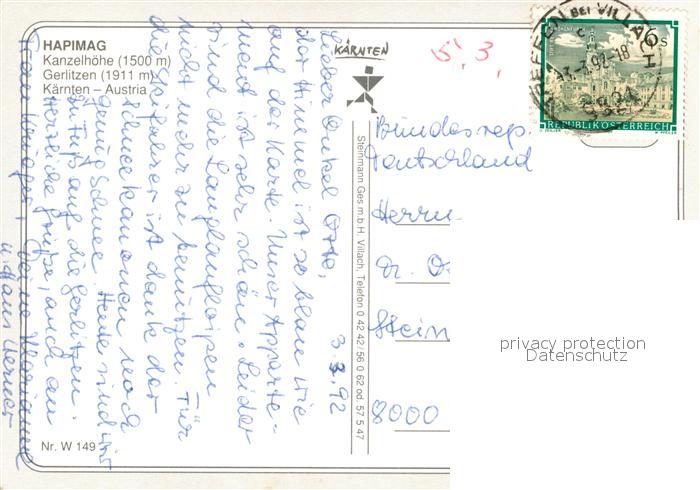 HAPIMAG
Kanzelhöhe (1500 m)
Gerlitzen (1911 m)
Kärnten – Austria
KÄRNTEN
5.3.
TREFFEN BEI VILLACH
6 S
REPUBLIK ÖSTERREICH
3.3.92
Lieber Onkel Otto,
der Himmel ist so blau wie
auf der Karte. Unser Apparte-
ment ist sehr schön. Leider
sind die Langlaufloipen
nicht mehr zu benutzen. Für
die Skifahrer ist dank der
Schneekanonen noch
genug Schnee. Heute sind wir
zu Fuß auf die Gerlitzen.
Herzliche Grüße, auch an
Deine Marianne
u. Hans Werner
Steinmann Ges.m.b.H. Villach, Telefon 0 42 42/56 0 62 od. 57 5 47
Bundesrep.
Deutschland
Herrn
Dr. O
Stein
8000
privacy protection
Datenschutz
Nr. W 149